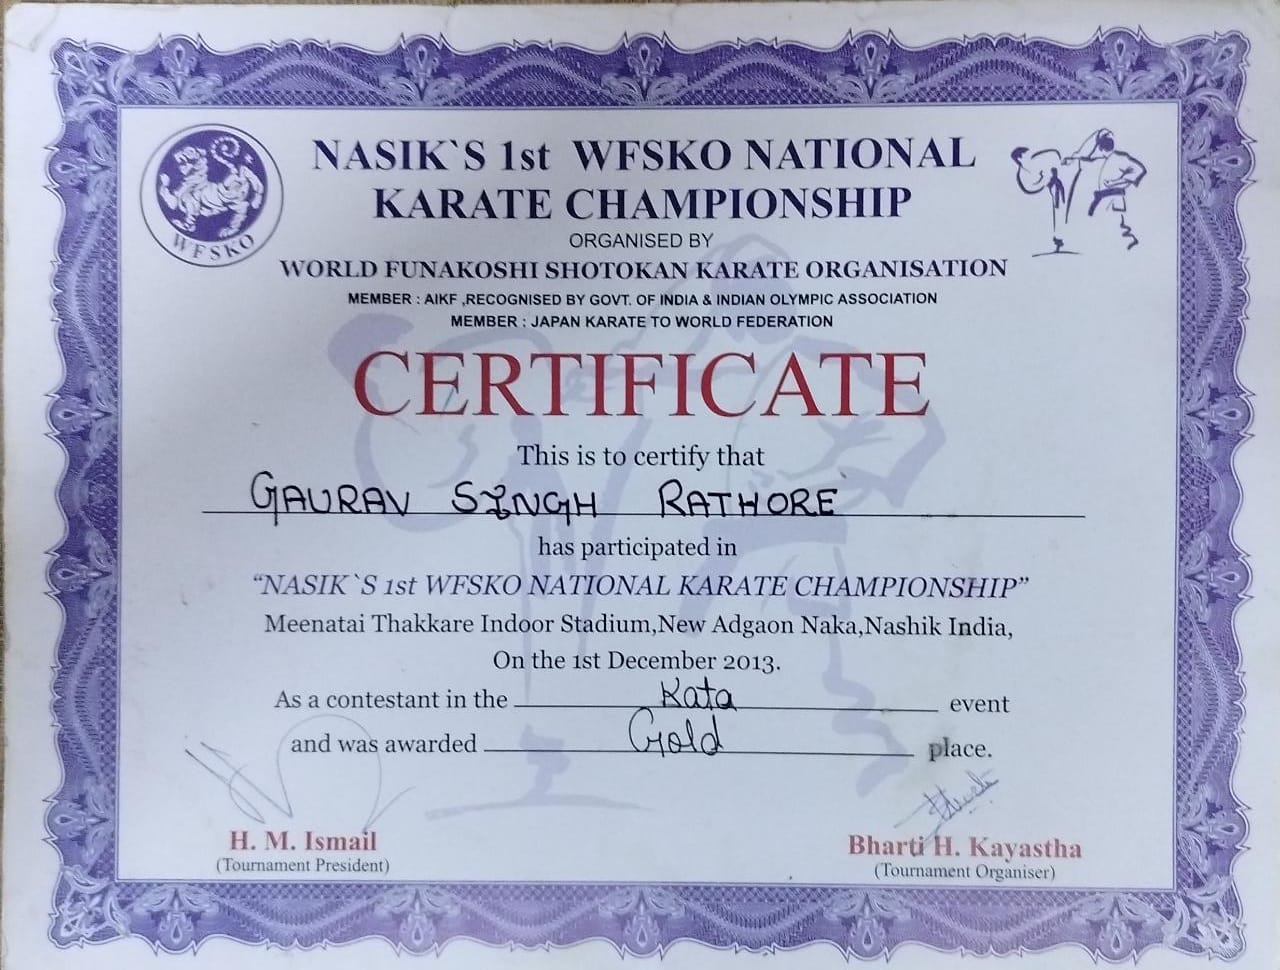 NASIK`S 1st WFSKO NATIONAL
KARATE CHAMPIONSHIP
WFSKO
ORGANISED BY
WORLD FUNAKOSHI SHOTOKAN KARATE ORGANISATION
MEMBER : AIKF ,RECOGNISED BY GOVT. OF INDIA & INDIAN OLYMPIC ASSOCIATION
MEMBER : JAPAN KARATE TO WORLD FEDERATION
CERTIFICATE
This is to certify that
GAURAV SINGH RATHORE
has participated in
“NASIK`S 1st WFSKO NATIONAL KARATE CHAMPIONSHIP”
Meenatai Thakkare Indoor Stadium,New Adgaon Naka,Nashik India,
On the 1st December 2013.
As a contestant in the Kata event
and was awarded Gold place.
H. M. Ismail
(Tournament President)
Bharti H. Kayastha
(Tournament Organiser)